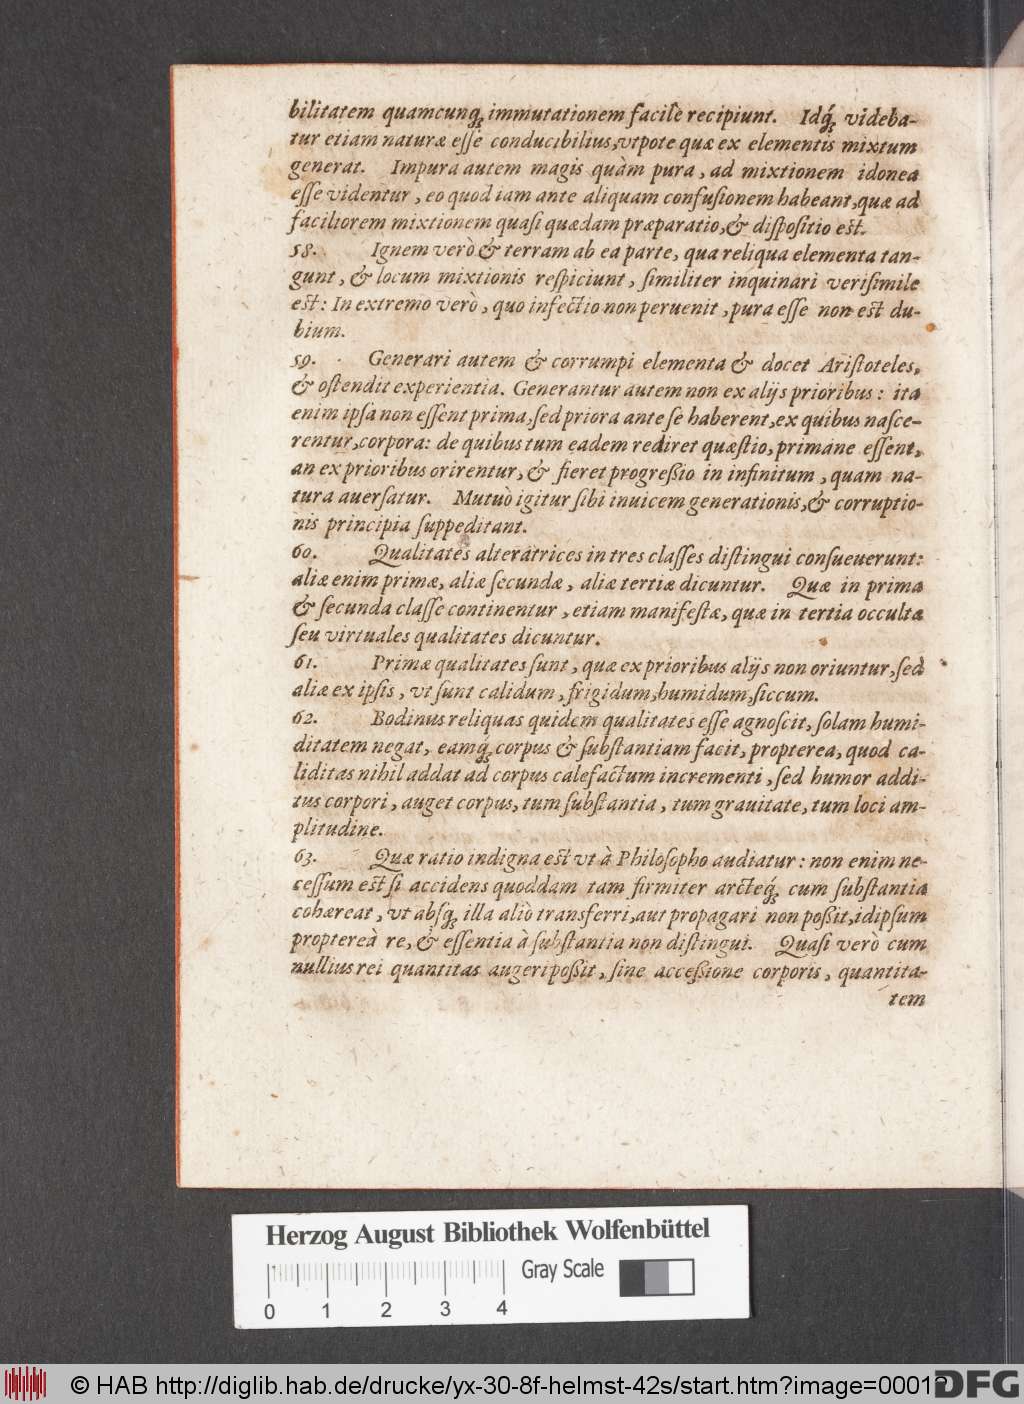 bilitatem quamcunq́; immutationem facilè recipiunt. Idq́; videba-
tur etiam naturæ esse conducibilius, vtpote quæ ex elementis mixtum
generat. Impura autem magis quàm pura, ad mixtionem idonea
esse videntur, eo quod iam ante aliquam confusionem habeant, quæ ad
faciliorem mixtionem quasi quædam præparatio, & dispositio est.
58. Ignem verò & terram ab ea parte, qua reliqua elementa tan-
gunt, & locum mixtionis respiciunt, similiter inquinari verisimile
est: In extremo verò, quo infectio non peruenit, pura esse non est du-
bium.
59. Generari autem & corrumpi elementa & docet Aristoteles,
& ostendit experientia. Generantur autem non ex alijs prioribus: ita
enim ipsa non essent prima, sed priora ante se haberent, ex quibus nasce-
rentur, corpora: de quibus tum eadem rediret quæstio, primane essent,
an ex prioribus orirentur, & fieret progreßio in infinitum, quam na-
tura auersatur. Mutuò igitur sibi inuicem generationis, & corruptio-
nis principia suppeditant.
60. Qualitates alteratrices in tres classes distingui consueuerunt:
aliæ enim primæ, aliæ secundæ, aliæ tertiæ dicuntur. Quæ in prima
& secunda classe continentur, etiam manifestæ, quæ in tertia occultæ
seu virtuales qualitates dicuntur.
61. Primæ qualitates sunt, quæ ex prioribus alijs non oriuntur, sed
aliæ ex ipsis, vt sunt calidum, frigidum, humidum, siccum.
62. Bodinus reliquas quidem qualitates esse agnoscit, solam humi-
ditatem negat, eamq́; corpus & substantiam facit, propterea, quod ca-
liditas nihil addat ad corpus calefactum incrementi, sed humor addi-
tus corpori, auget corpus, tum substantia, tum grauitate, tum loci am-
plitudine.
63. Quæ ratio indigna est vt à Philosopho audiatur: non enim ne-
cessum est si accidens quoddam tam firmiter arcteq́; cum substantia
cohæreat, vt absq́; illa aliò transferri, aut propagari non poßit, id ipsum
proptereà re, & essentia à substantia non distingui. Quasi verò cum
nullius rei quantitas augeri poßit, sine acceßione corporis, quantita-
tem
Herzog August Bibliothek Wolfenbüttel
Gray Scale
0 1 2 3 4
© HAB http://diglib.hab.de/drucke/yx-30-8f-helmst-42s/start.htm?image=00012
DFG